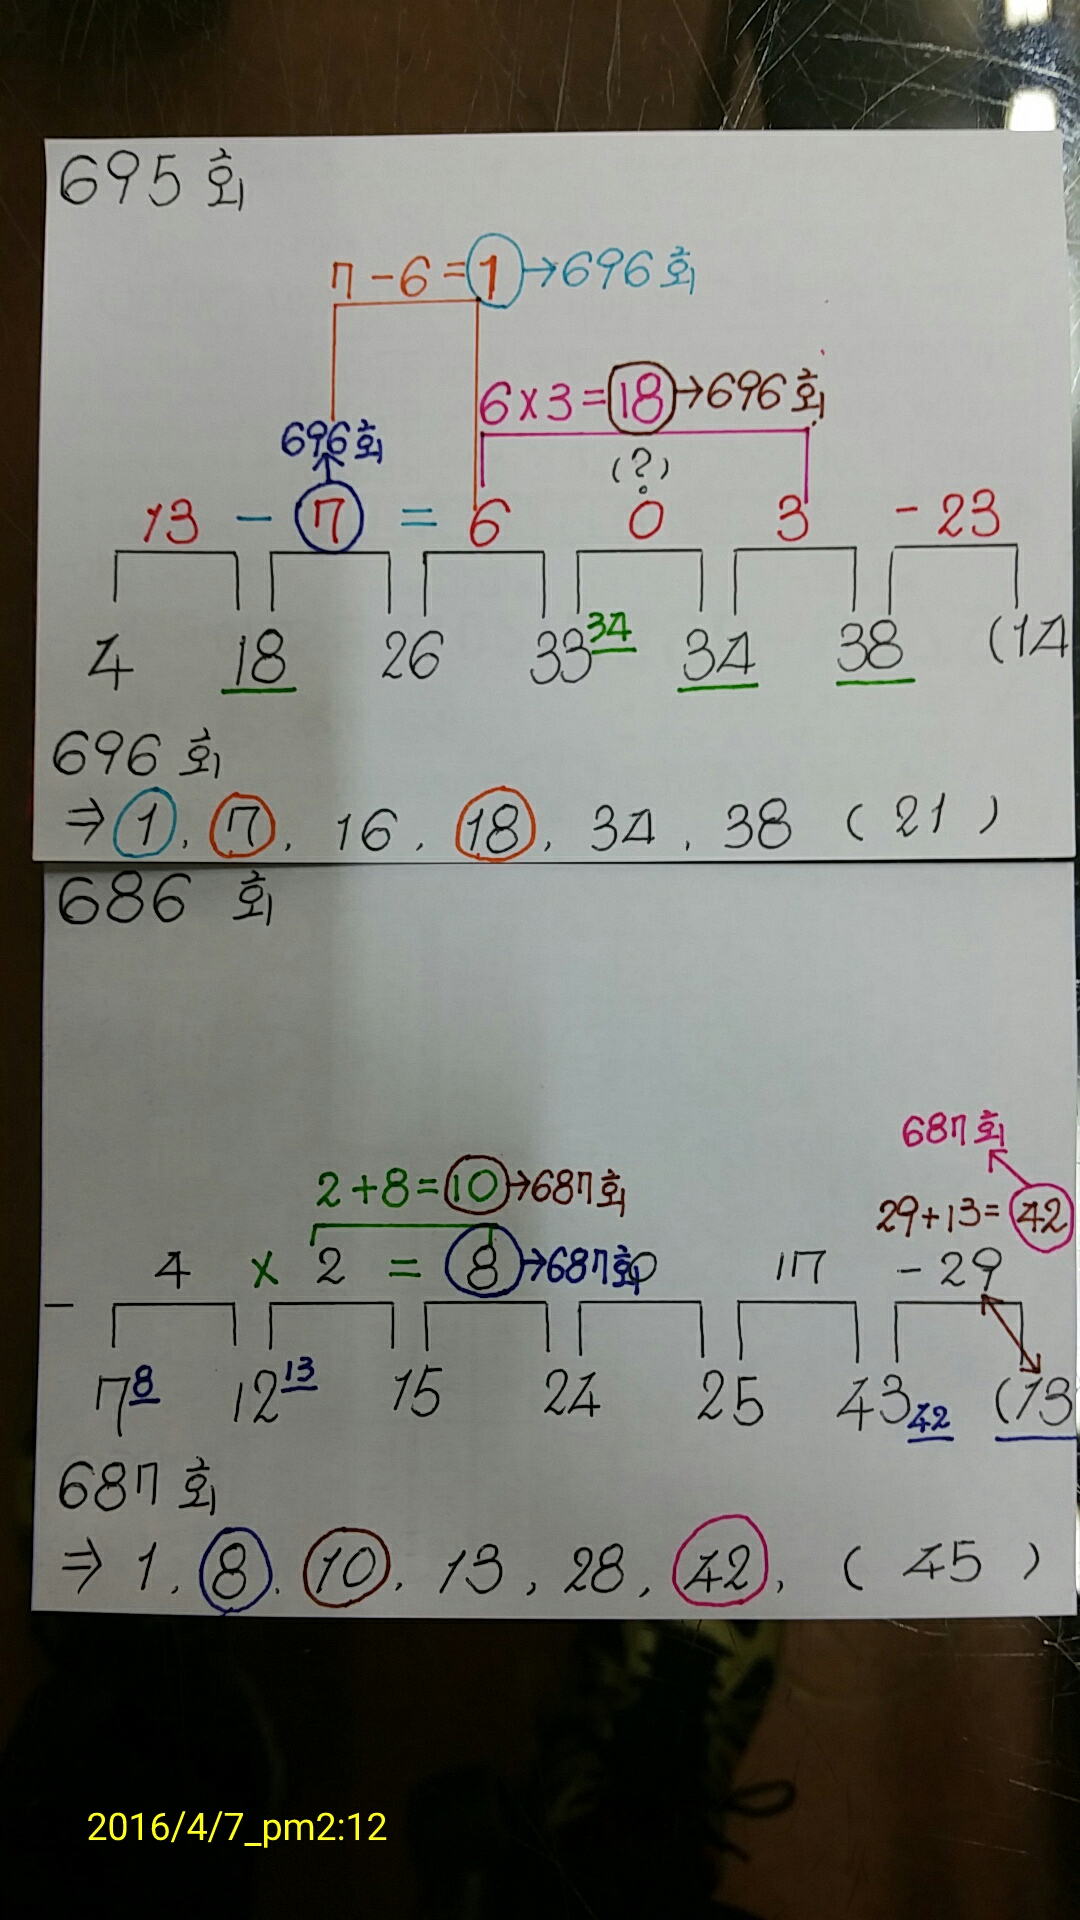 695회
7-6=1→696회
6×3=18→696회
696회
(?)
13 - 7 = 6 0 3 -23
34
4 18 26 33 34 38 (14
696회
⇒ 1, 7, 16, 18, 34, 38 (21)
686 회
687회
2+8=10→687회
29+13=42
4 × 2 = 8→687회 0 17 -29
7 8 12 13 15 24 25 43 42 (13
687회
⇒ 1, 8, 10, 13, 28, 42, (45)
2016/4/7_pm2:12